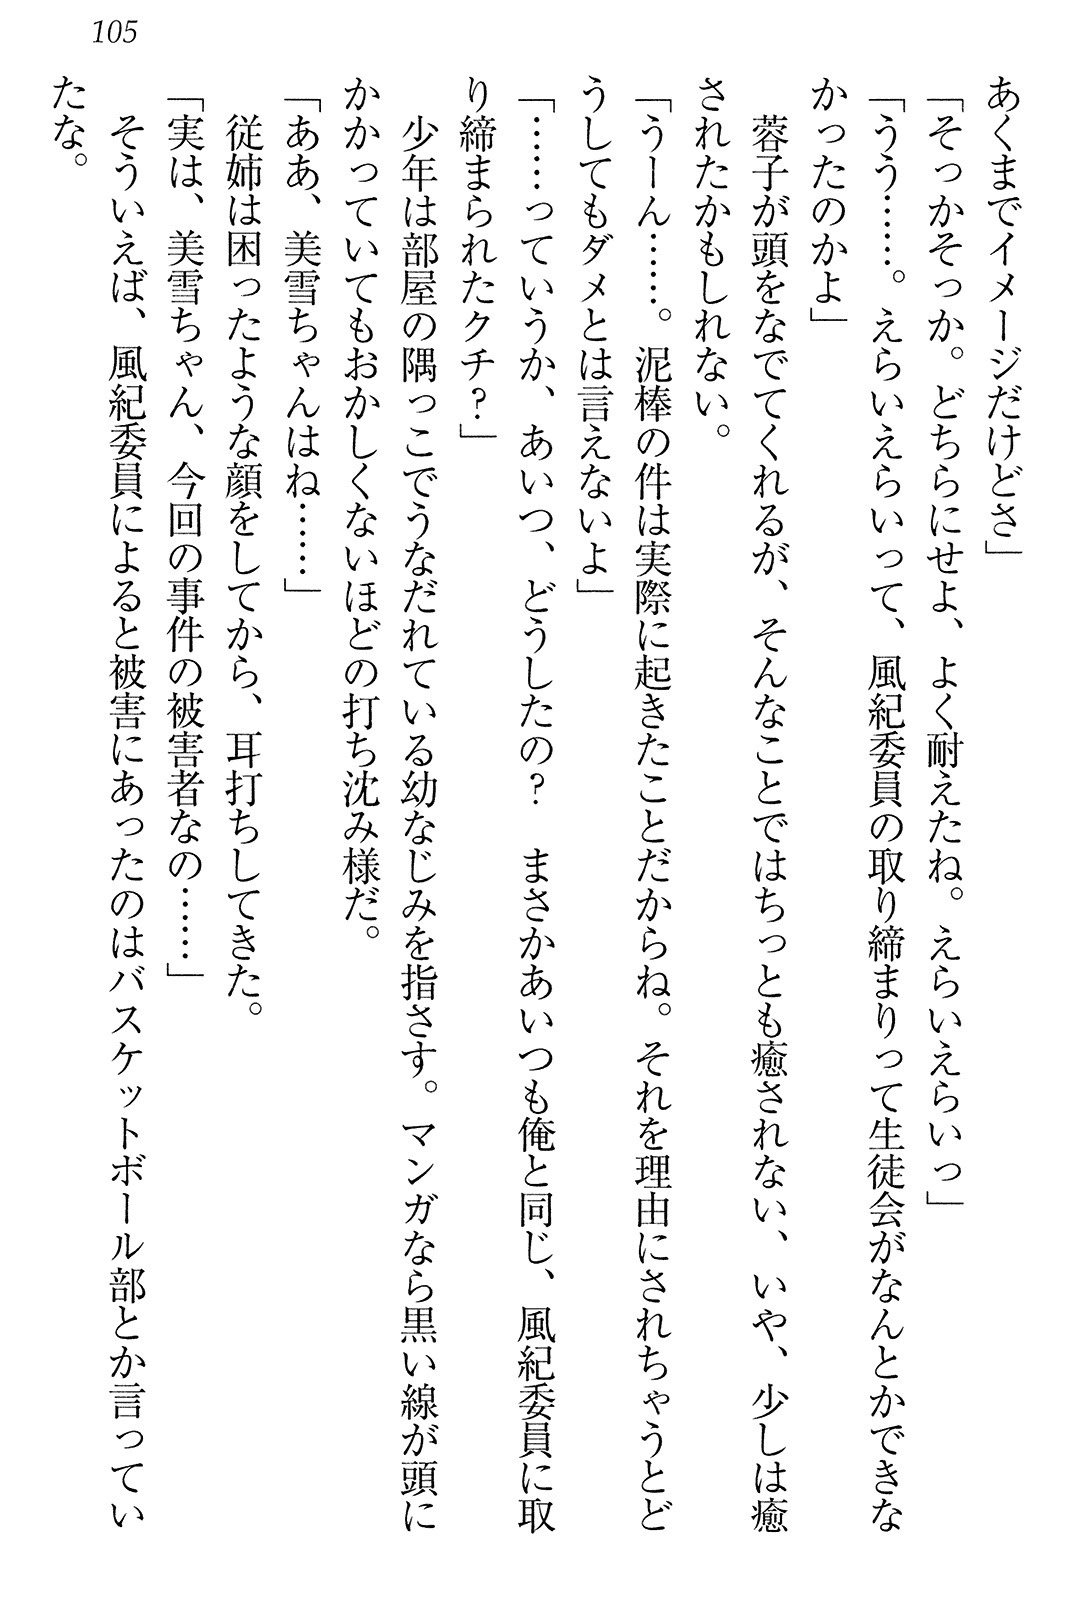 105
あくまでイメージだけどさ」
「そっかそっか。どちらにせよ、よく耐えたね。えらいえらいっ」
「うう……。えらいえらいって、風紀委員の取り締まりって生徒会がなんとかできな
かったのかよ」
　蓉子が頭をなでてくれるが、そんなことではちっとも癒されない、いや、少しは癒
されたかもしれない。
「うーん……。泥棒の件は実際に起きたことだからね。それを理由にされちゃうとど
うしてもダメとは言えないよ」
「……っていうか、あいつ、どうしたの？　まさかあいつも俺と同じ、風紀委員に取
り締まられたクチ？」
　少年は部屋の隅っこでうなだれている幼なじみを指さす。マンガなら黒い線が頭に
かかっていてもおかしくないほどの打ち沈み様だ。
「ああ、美雪ちゃんはね……」
　従姉は困ったような顔をしてから、耳打ちしてきた。
「実は、美雪ちゃん、今回の事件の被害者なの……」
　そういえば、風紀委員によると被害にあったのはバスケットボール部とか言ってい
たな。